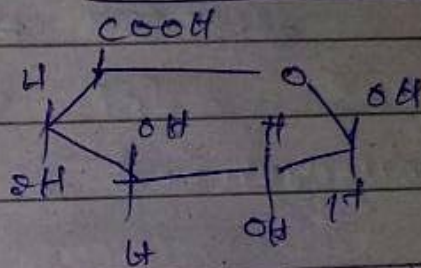 COOH
H O OH
OH H
OH H
H OH